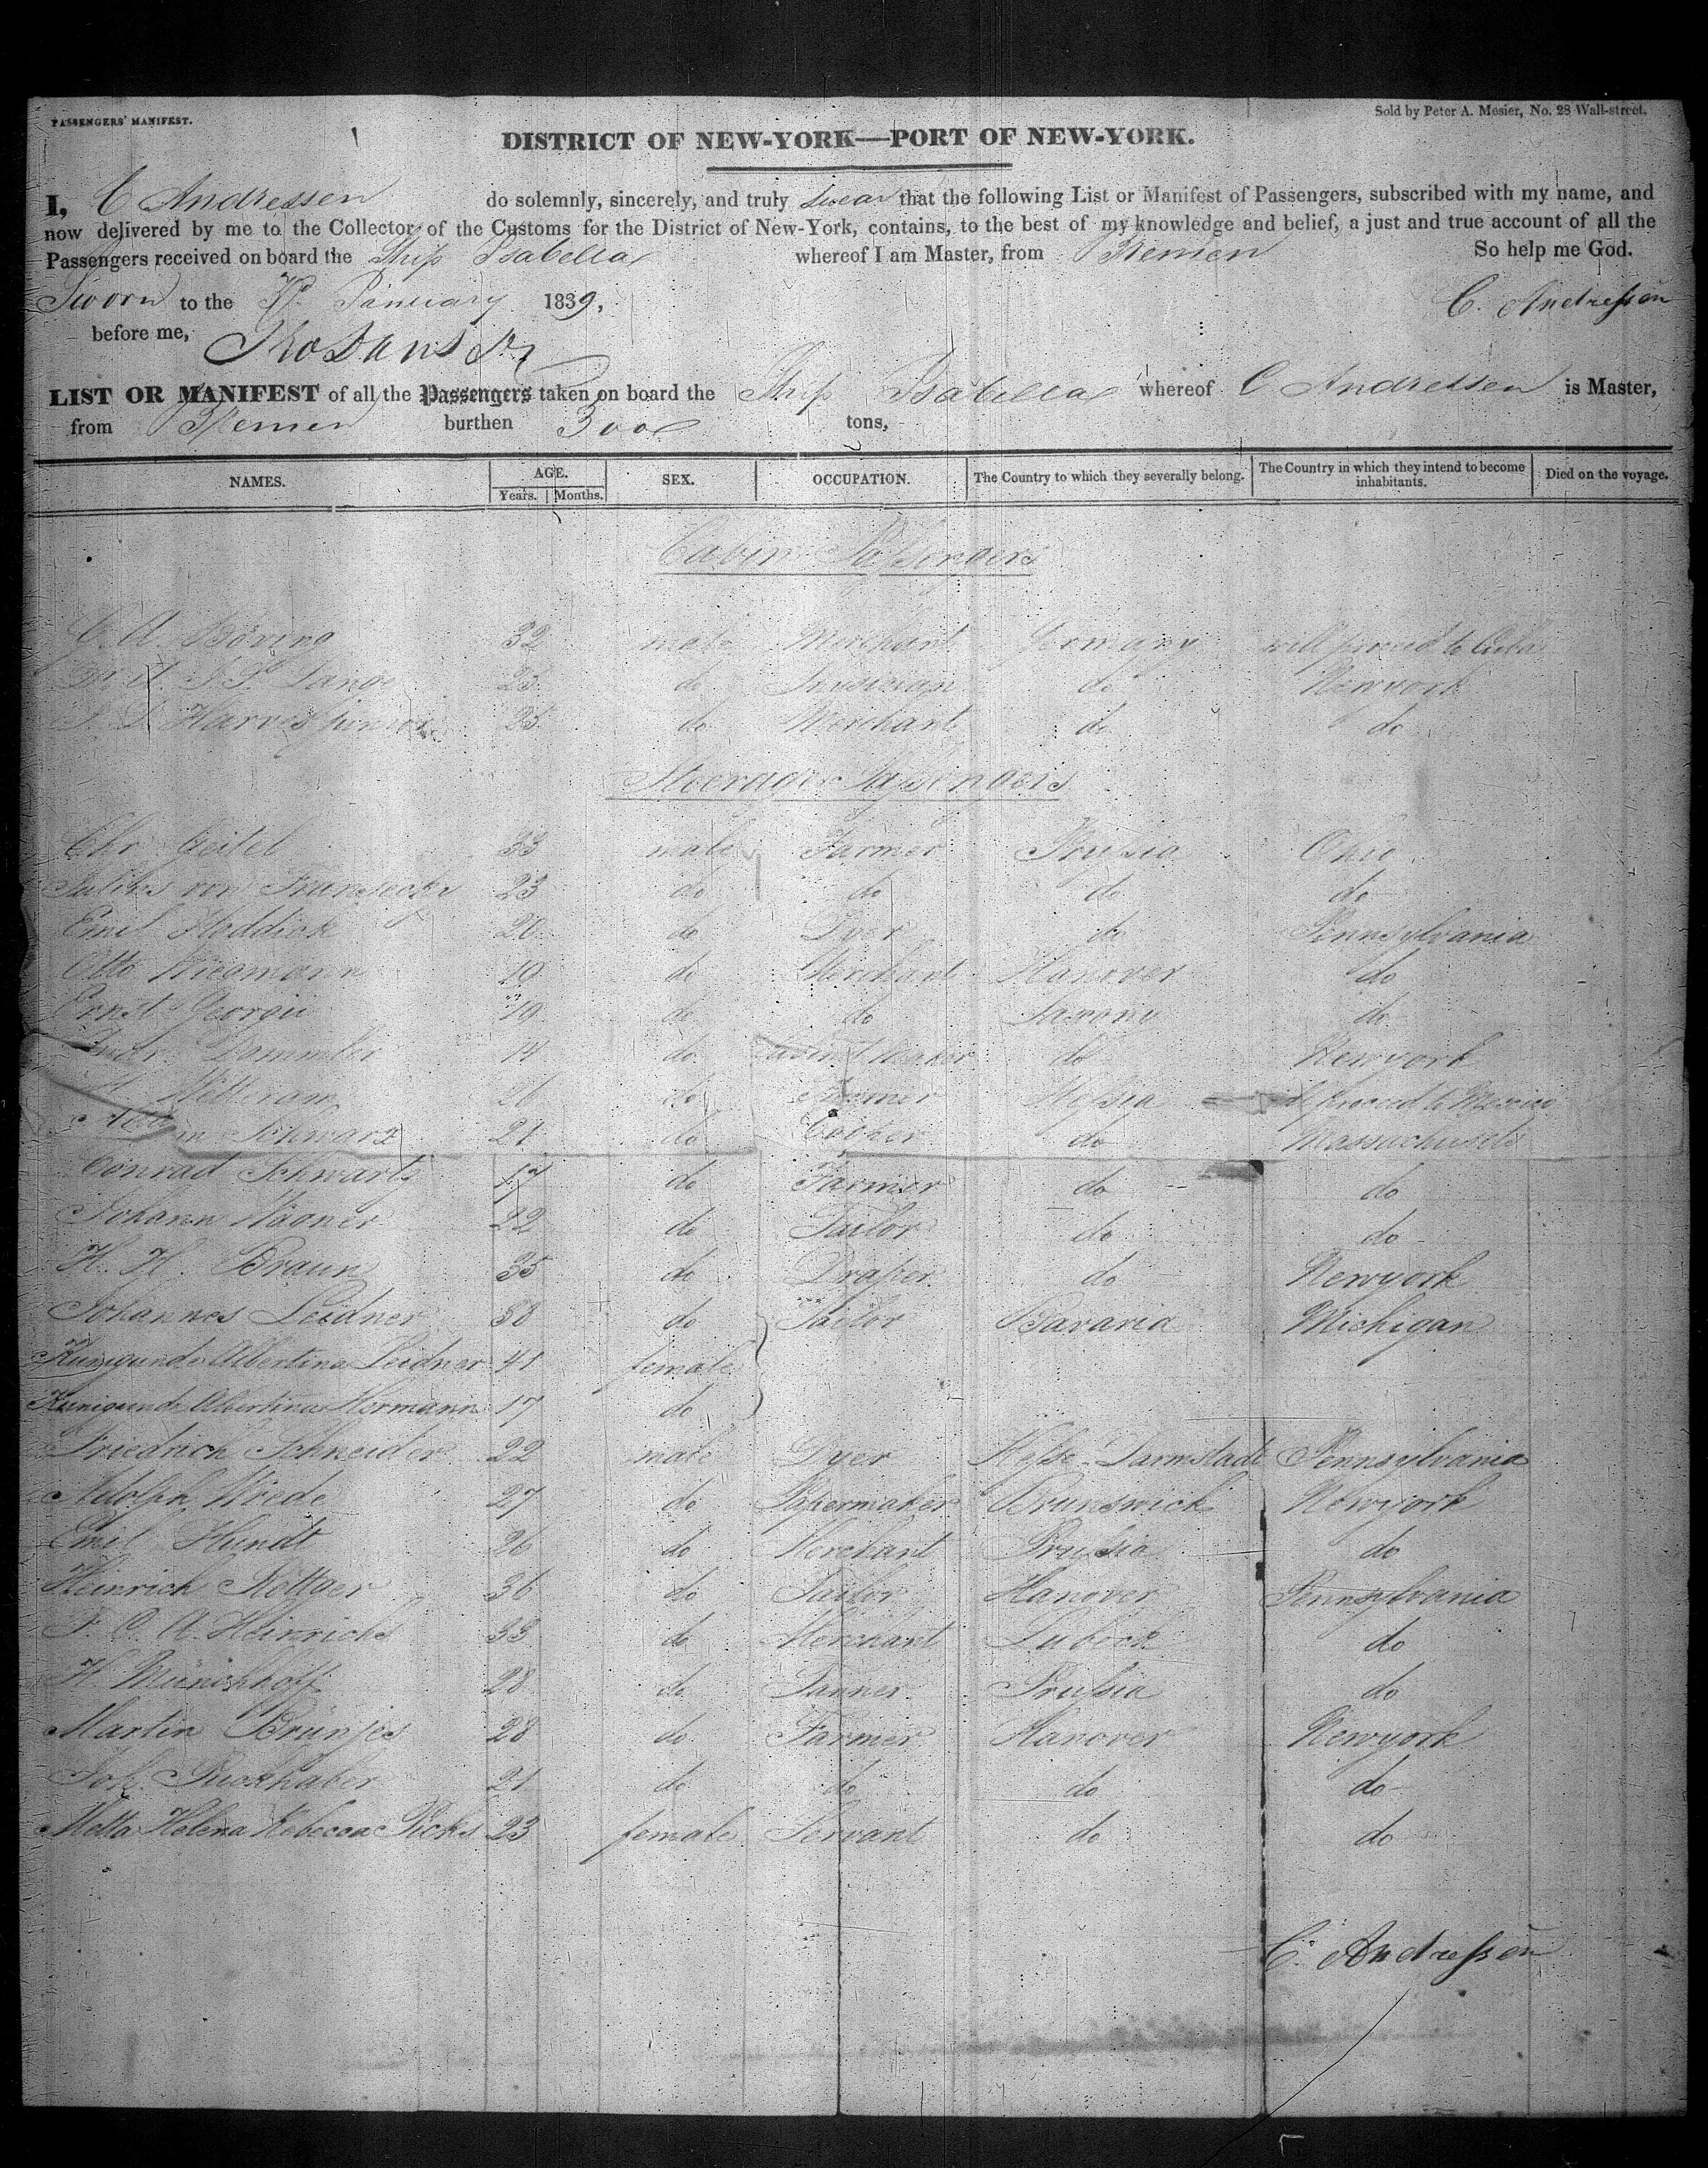 PASSENGERS' MANIFEST.
Sold by Peter A. Mesier, No. 28 Wall-street.
DISTRICT OF NEW-YORK—PORT OF NEW-YORK.
I, C Andressen do solemnly, sincerely, and truly swear that the following List or Manifest of Passengers, subscribed with my name, and
now delivered by me to the Collector of the Customs for the District of New-York, contains, to the best of my knowledge and belief, a just and true account of all the
Passengers received on board the Ship Isabella whereof I am Master, from Bremen So help me God.
Sworn to the January 1839, C. Andreſsen
before me,
LIST OR MANIFEST of all the Passengers taken on board the Ship Isabella whereof C Andressen is Master,
from Bremen burthen 300 tons,
NAMES. AGE. SEX. OCCUPATION. The Country to which they severally belong. The Country in which they intend to become inhabitants. Died on the voyage.
Years. Months.
Cabin Paſsengers
C. A. Böving 32 male Merchant Germany will proceed to Cuba
Lange 25 do do Newyork
Harves junior 25 do Merchant do do
Steerage Paſsengers
Chr Geitel 33 male Farmer Pruſsia Ohio
Julius von 23 do do do do
Emil Haddick 20 do Dyer do Pennsylvania
Otto Wiegmann 19 do Merchant Hanover do
Ernst Georgii 19 do do Saxony do
Dommler 14 do do Newyork
26 do Farmer Heſsia proceed to Mexico
Schwarz 21 do Cooper do Massachusets
Conrad Schwartz 17 do Farmer do do
Johann Wagner 22 do Tailor do do
H. H. Braun 35 do Draper do Newyork
Johannes Leidner 38 do Tailor Bavaria Michigan
Kunigunde Albertina Leidner 41 female
Kunigunde Albertina Hermann 17 do
Friedrich Schneider 22 male Dyer Heſse-Darmstadt Pennsylvania
Adolph Wrede 27 do Papermaker Brunswick Newyork
Emil Hundt 26 do Merchant Pruſsia do
Heinrich Röttger 36 do Tailor Hanover Pennsylvania
F. C. A. Heinrichs 33 do Merchant Lubeck do
H. Münchhoff 28 do Tanner Pruſsia do
Martin Brünjes 28 do Farmer Hanover Newyork
Joh. Puckhaber 21 do do do do
Metta Helena Rebecca Picks 23 female Servant do do
C. Andreſsen